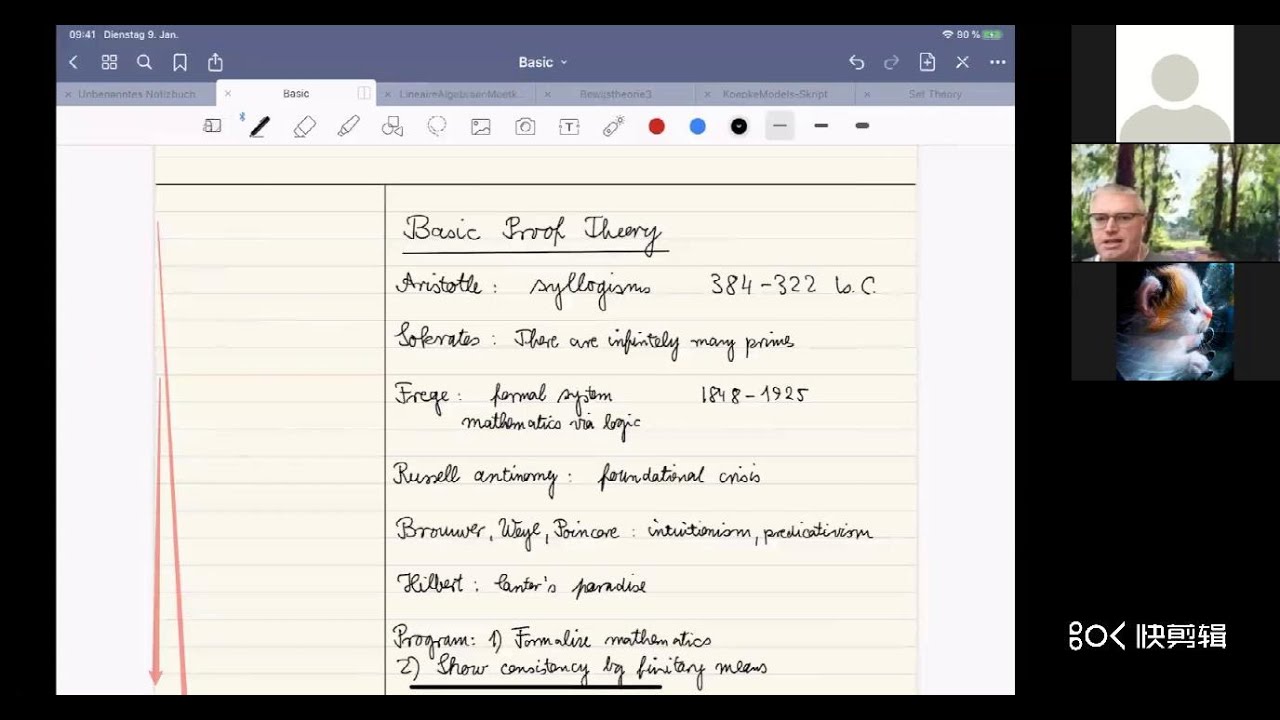 09:41 Dienstag 9. Jan.
90 %
Basic
Unbenanntes Notizbuch
Basic
Beweistheorie3
KoepkeModels-Skript
Set Theory
Basic Proof Theory
Aristotle : syllogisms 384-322 b.C.
Sokrates : There are infinitely many primes
Frege : formal system 1848-1925
mathematics via logic
Russell antinomy : foundational crisis
Brouwer, Weyl, Poincare : intuitionism, predicativism
Hilbert : Cantor's paradise
Program: 1) Formalise mathematics
2) Show consistency by finitary means
快剪辑